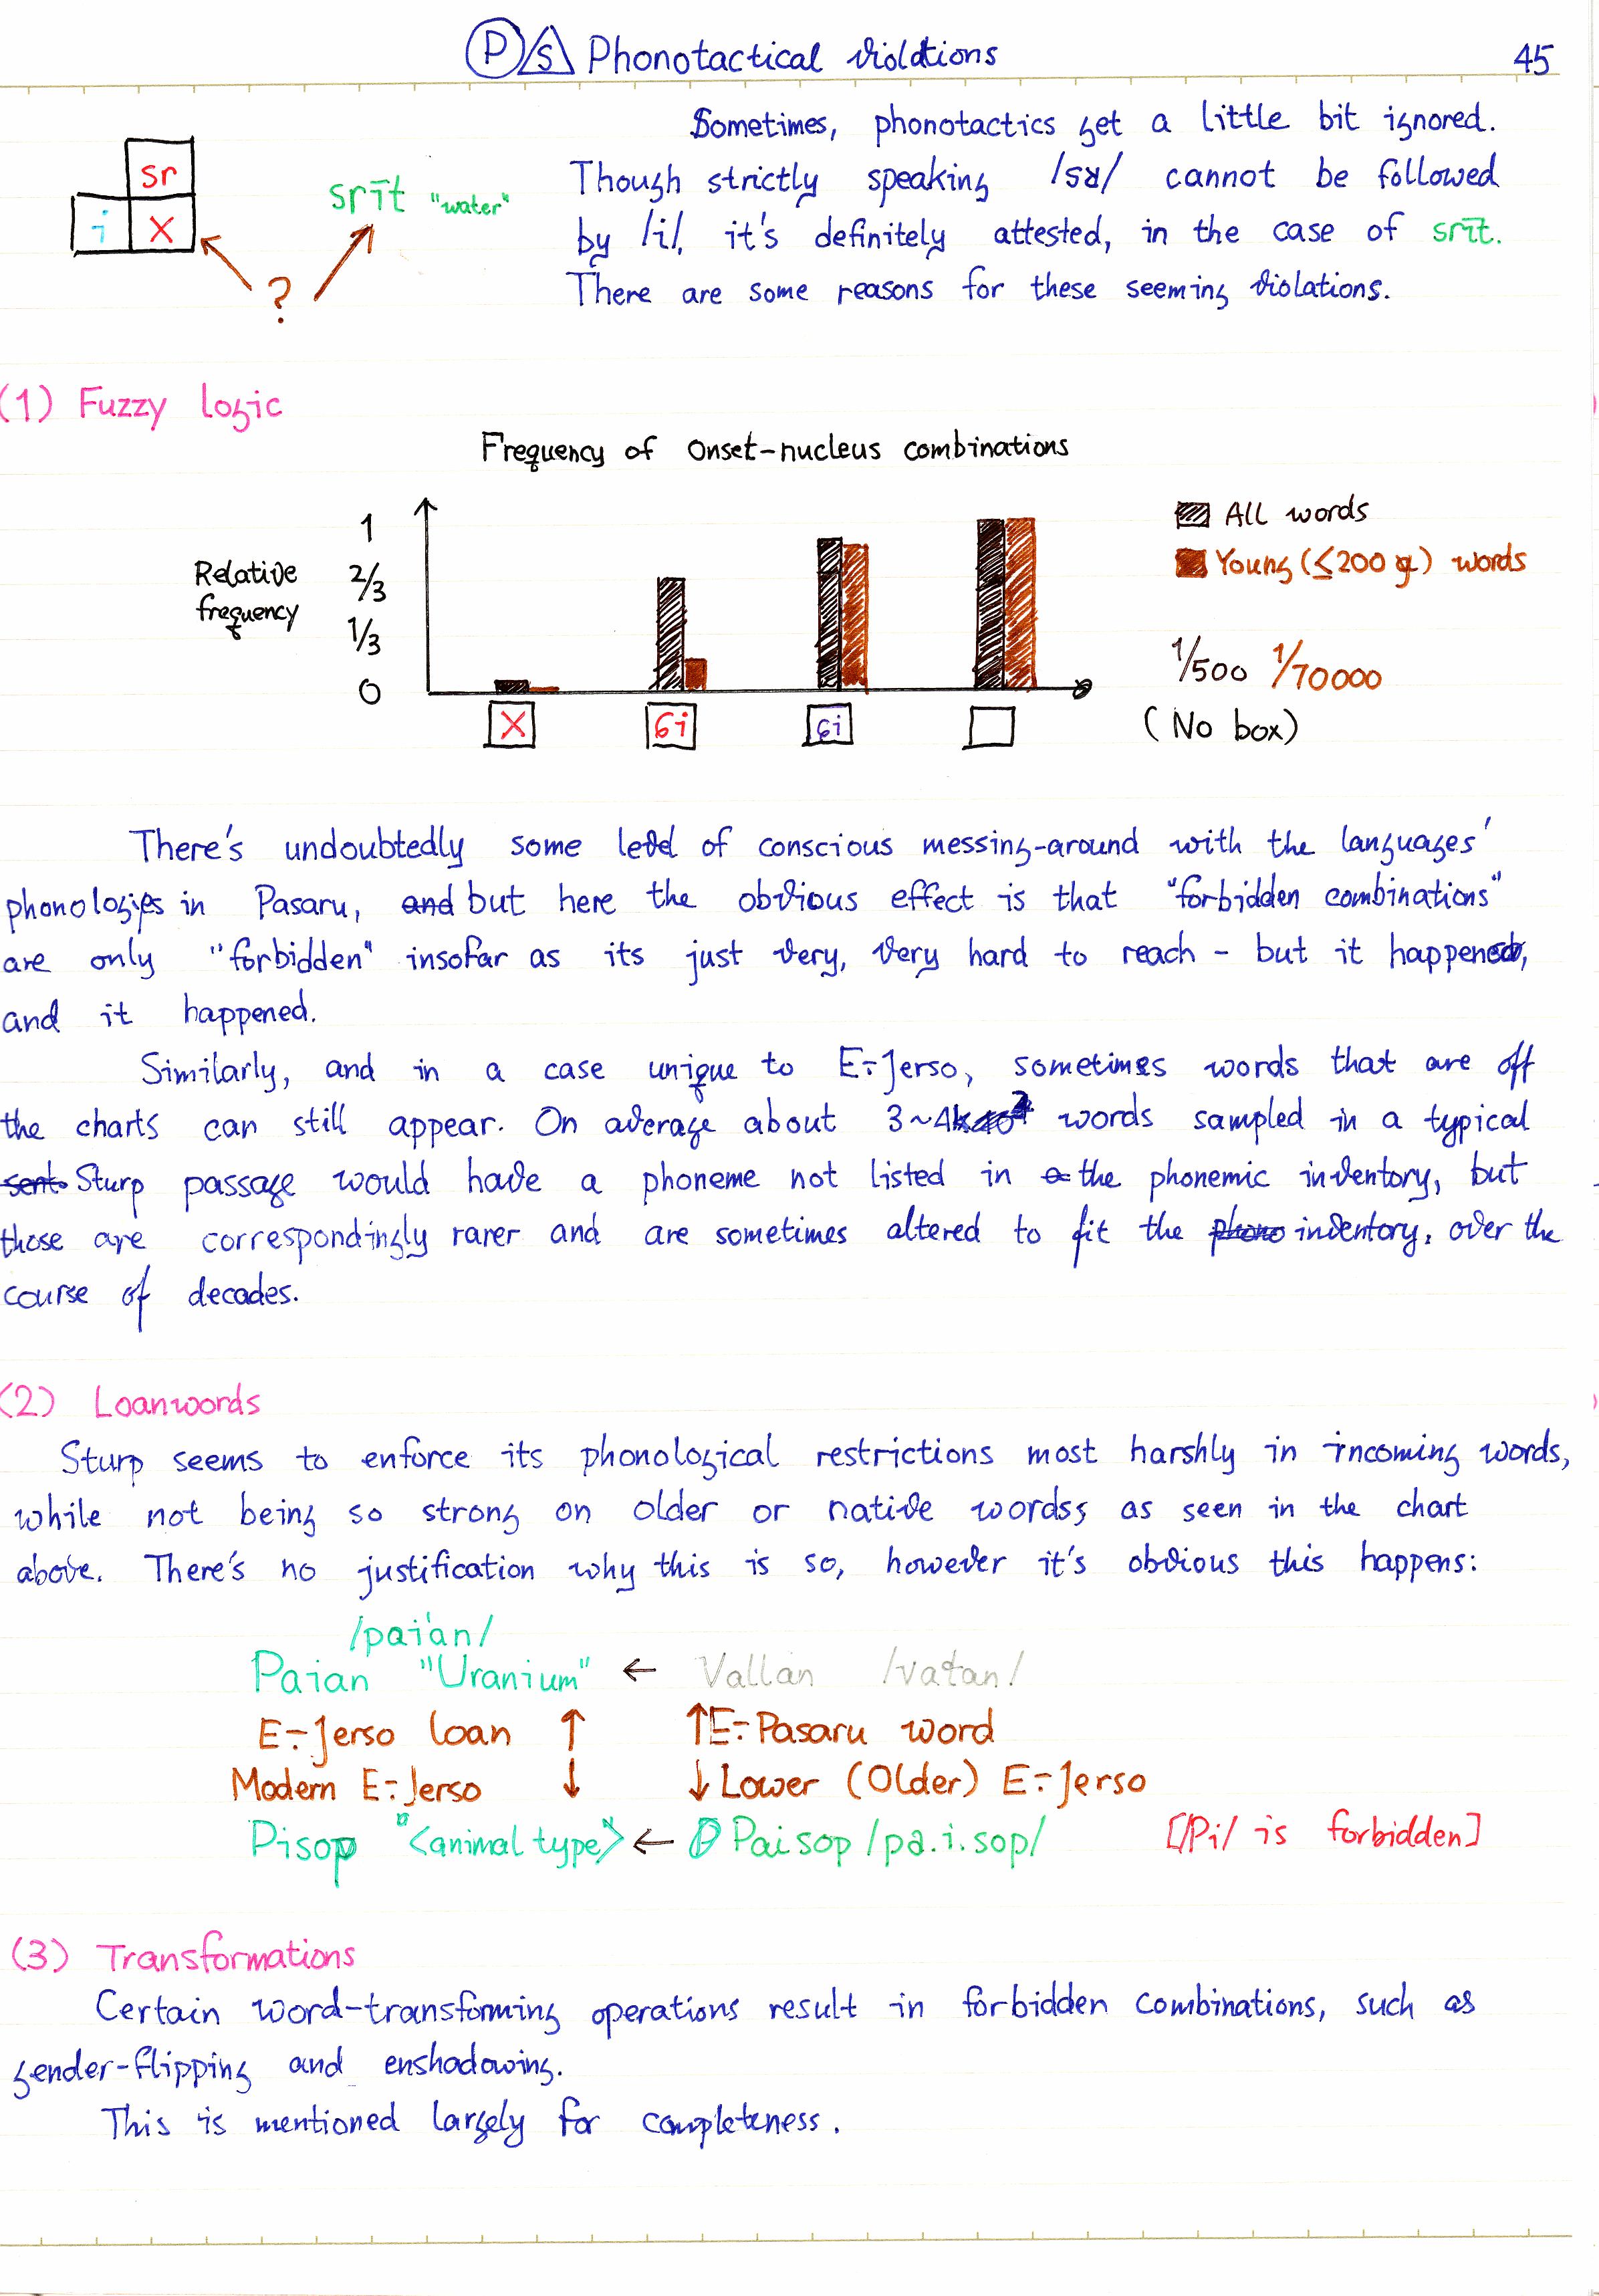 P S Phonotactical violations 45
Sometimes, phonotactics get a little bit ignored.
sr
srīt "water"
Though strictly speaking /sʁ/ cannot be followed
i X
by /i/, it's definitely attested, in the case of srīt.
?
There are some reasons for these seeming violations.
(1) Fuzzy logic
Frequency of Onset-nucleus combinations
1
All words
Relative frequency
2/3
Young (≤200 y) words
1/3
1/500 1/70000
0
X 6i 6i
(No box)
There's undoubtedly some level of conscious messing-around with the languages'
phonologies in Pasaru, and but here the obvious effect is that "forbidden combinations"
are only "forbidden" insofar as its just very, very hard to reach - but it happened,
and it happened.
Similarly, and in a case unique to E÷Jerso, sometimes words that are off
the charts can still appear. On average about 3~4 words sampled in a typical
sent. Sturp passage would have a phoneme not listed in a the phonemic inventory, but
those are correspondingly rarer and are sometimes altered to fit the phono inventory, over the
course of decades.
(2) Loanwords
Sturp seems to enforce its phonological restrictions most harshly in incoming words,
while not being so strong on older or native words; as seen in the chart
above. There's no justification why this is so, however it's obvious this happens:
/pai'an/
Paian "Uranium" ← Vallan /vaɬan/
E÷Jerso loan ↑ ↑E÷Pasaru word
Modern E÷Jerso ↓ ↓Lower (Older) E÷Jerso
Pisop "<animal type>" ← Paisop /pa.i.sop/ [/Pi/ is forbidden]
(3) Transformations
Certain word-transforming operations result in forbidden combinations, such as
gender-flipping and enshadowing.
This is mentioned largely for completeness.